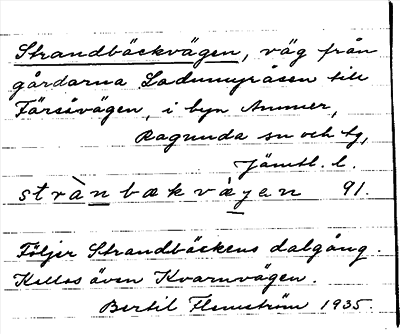 Strandbäckvägen, väg från
gårdarna Ladumyråsen till
Färsåvägen, i byn Ammer,
Ragunda sn och tg,
Jämtl. l.
stràn bækvæ̀gen 91.
Följer Strandbäckens dalgång.
Kallas även Kvarnvägen.
Bertil Flemström 1935.